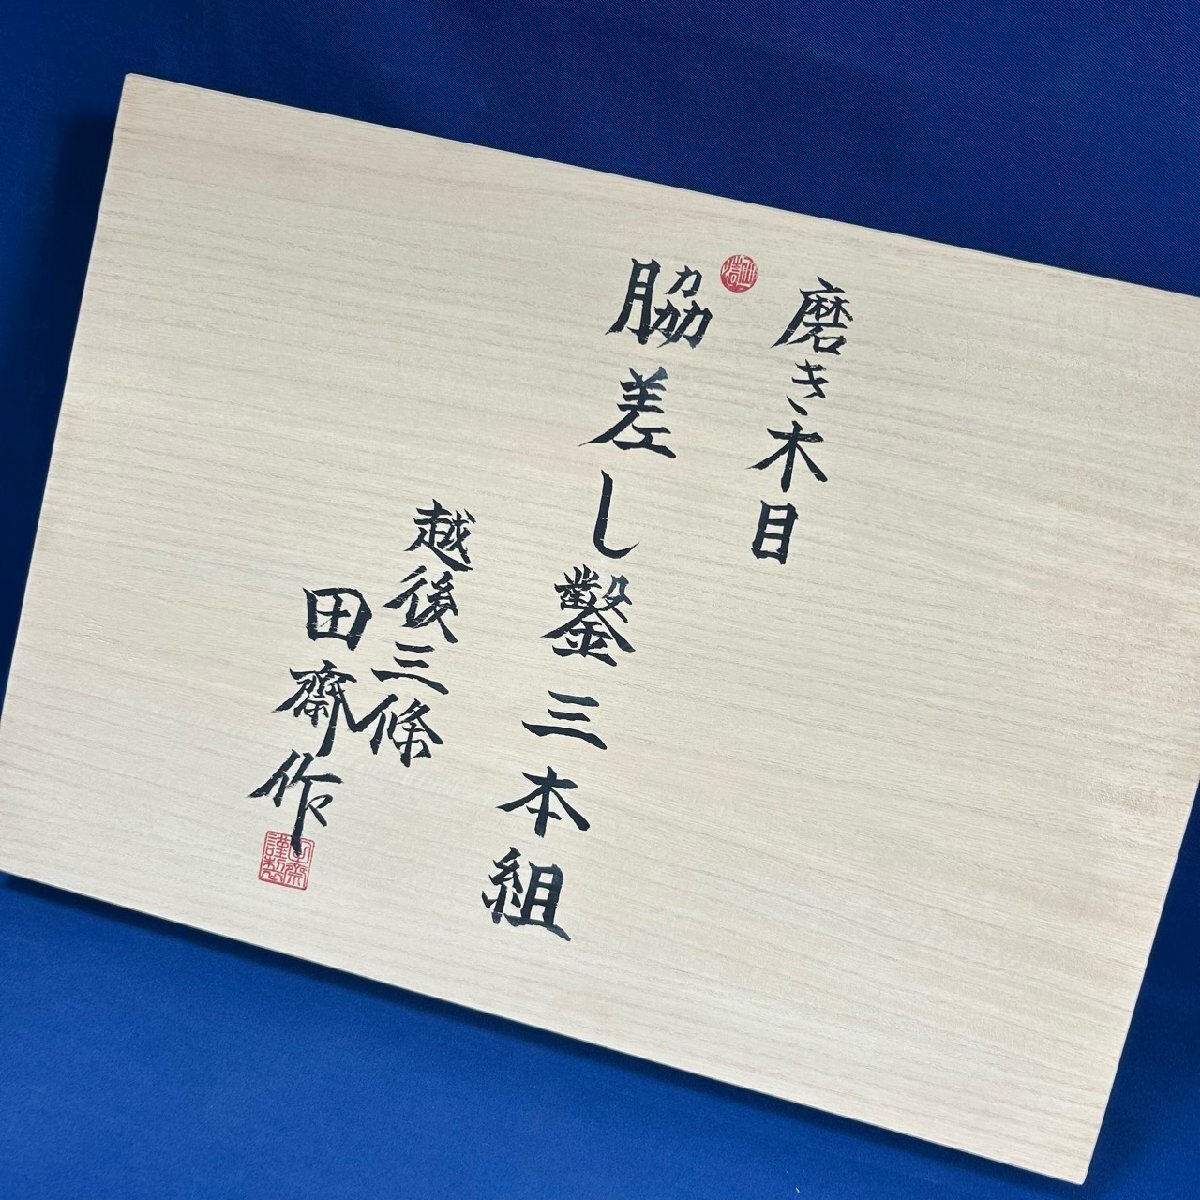 磨き木目
脇差し鑿三本組
越後三條
田齋作
田齋謹製